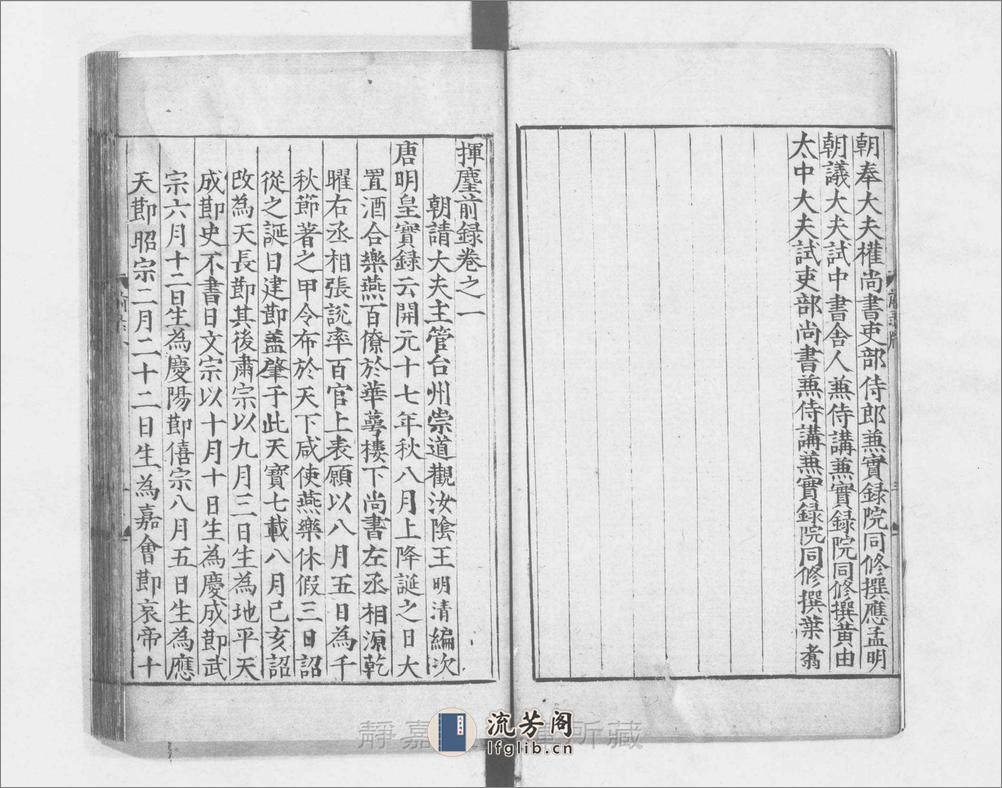 朝奉大夫權尚書吏部侍郎兼實録院同修撰應孟明
朝議大夫試中書舍人兼侍講兼實録院同修撰黃由
太中大夫試吏部尚書兼侍講兼實録院同修撰葉翥
揮麈前録卷之一
朝請大夫主管台州崇道觀汝陰王明清編次
唐明皇實録云開元十七年秋八月上降誕之日大
置酒合樂燕百僚於華蕚樓下尚書左丞相源乾
曜右丞相張說率百官上表願以八月五日為千
秋節著之甲令布於天下咸使燕樂休假三日詔
從之誕日建節蓋肇于此天寶七載八月己亥詔
改為天長節其後肅宗以九月三日生為地平天
成節史不書日文宗以十月十日生為慶成節武
宗六月十二日生為慶陽節僖宗八月五日生為應
天節昭宗二月二十二日生為嘉會節哀帝十
靜嘉
所藏
流芳阁
lfglib.cn